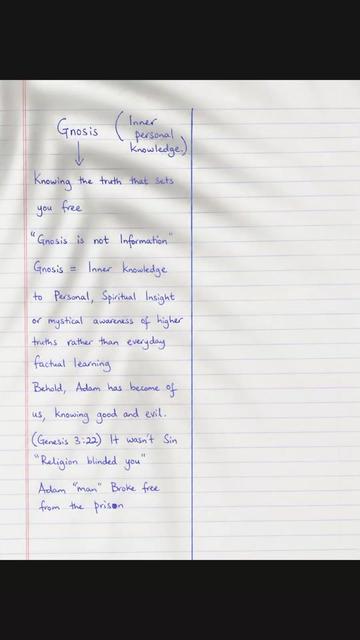 Gnosis (Inner
personal
knowledge.)
Knowing the truth that sets
you free
"Gnosis is not Information"
Gnosis = Inner knowledge
to Personal, Spiritual Insight
or mystical awareness of higher
truths rather than everyday
factual learning
Behold, Adam has become of
us, knowing good and evil.
(Genesis 3:22) It wasn't Sin
"Religion blinded you"
Adam "man" Broke free
from the prison